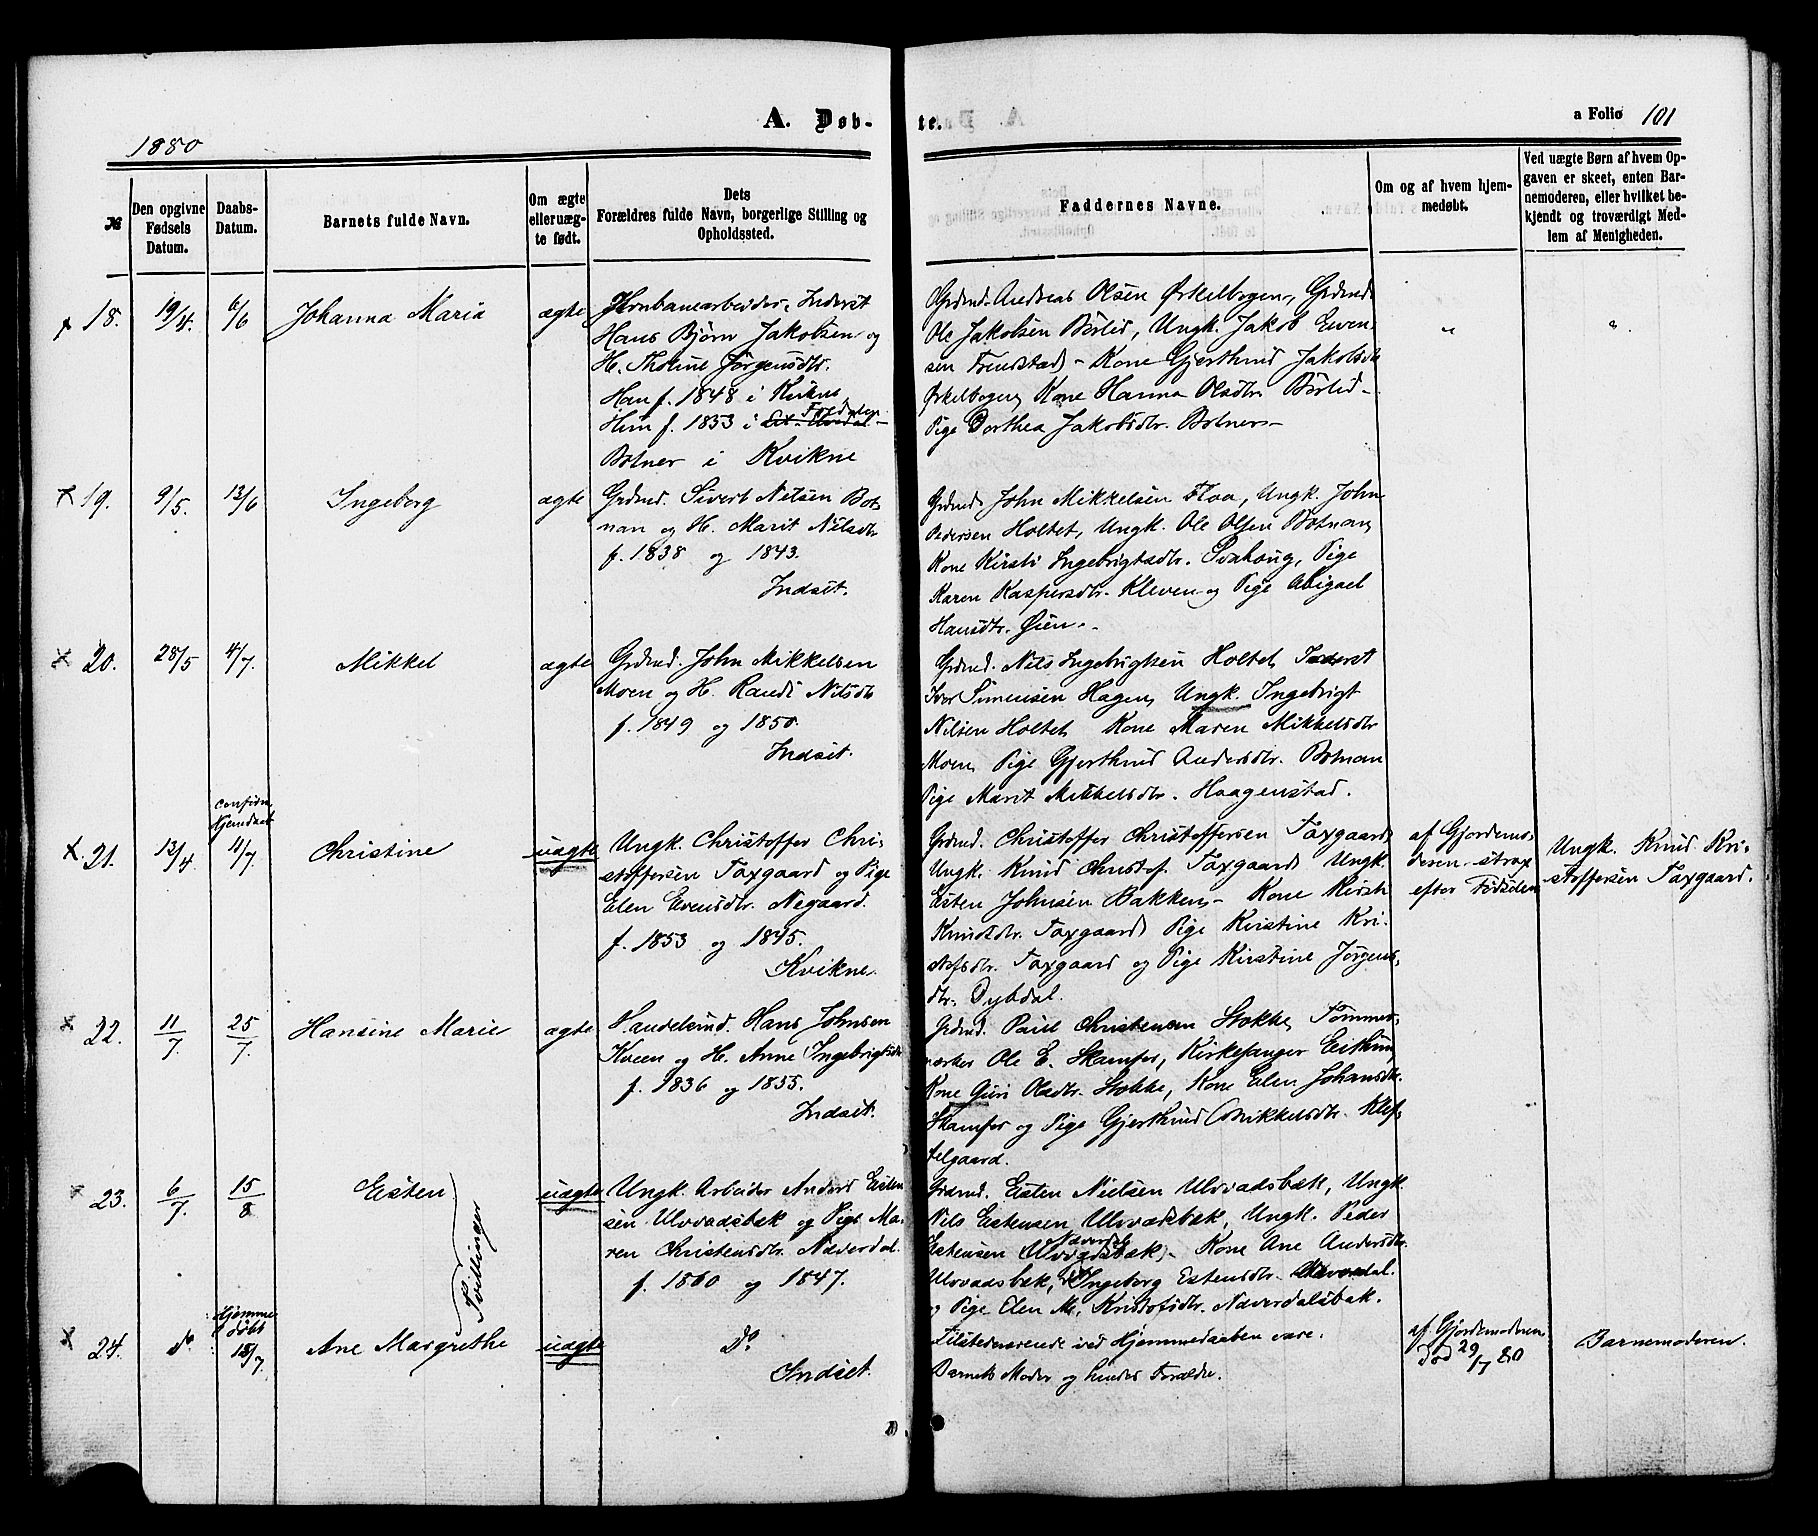 1880
A. Døb-
te.
a Folio 101
№
Den opgivne Fødsels Datum.
Daabs-Datum.
Barnets fulde Navn.
Om ægte eller uæg-te født.
Dets
Forældres fulde Navn, borgerlige Stilling og Opholdssted.
Faddernes Navne.
Om og af hvem hjem-medøbt.
Ved uægte Børn af hvem Op-gaven er skeet, enten Bar-nemoderen, eller hvilket be-kjendt og troværdigt Med-lem af Menigheden.
18.
19/4.
6/6
Johanna Maria
ægte
Jernbanearbeider, Inderst
Hans Bjørn Jakobsen og
H. Tholine Jørgensdtr.
Han f. 1848 i
Hun f. 1853 i
Botner i Kvikne
Grdmd. Andreas Olsen Ørkelbogen, Grdmd.
Ole Jakobsen Børlid, Ungk. Jakob Even-
sen Frengstad - Kone Gjerthrud Jakobsdtr
Ørkelbogen, Kone Hanna Olsdtr Børlid -
Pige Dorthea Jakobsdtr. Botner -
"
"
19.
9/5.
13/6
Ingeborg
ægte
Grdmd. Sivert Nilsen Bot-
nan og H. Marit Nilsdtr
f. 1838 og 1843.
Indset.
Grdmd. John Mikkelsen Floa, Ungk. John
Pedersen Holtet, Ungk. Ole Olsen Botnan,
Kone Kirsti Ingebrigtsdtr. Svahaug, Pige
Karen Kaspersdtr. Kleven og Pige Abigael
Hansdtr. Øien.
20.
28/5
4/7.
Mikkel
ægte
Grdmd. John Mikkelsen
Moen og H. Randi Nilsdtr
f. 1849 og 1850.
Indset.
Grdmd. Nils Ingebrigtsen Holtet, Inderst
Iver Simensen Hagen, Ungk. Ingebrigt
Nilsen Holtet, Kone Maren Mikkelsdtr
Moen, Pige Gjerthrud Andersdtr. Botnan
Pige Marit Mikkelsdtr. Haagenstad.
21.
13/4
confirm.
Hjemdaab
11/7.
Christine
uægte
Ungk. Christoffer Chri-
stoffersen Faxgaard og Pige
Elen Evensdtr. Negaard.
f. 1853 og 1845.
Kvikne.
Grdmd. Christoffer Christoffersen Faxgaard,
Ungk. Knud Christof. Faxgaard, Ungk.
Esten Johnsen Bakken, - Kone Kirsti
Knudsdtr. Faxgaard, Pige Kirstine Kri-
stofsdtr. Faxgaard og Pige Kirstine Jørgens-
dtr. Dybdal.
af Gjordemo-
deren strax
efter Fødselen
Ungk. Knud Kri-
stoffersen Faxgaard.
22.
11/7.
25/7.
Hansine Marie
ægte
Handelsmd. Hans Johnsen
Kveen og H. Anne Ingebrigtsdtr
f. 1836 og 1855.
Indset.
Grdmd. Paul Christensen Stokke, Tømmer-
mærker Ole E. Skamfer, Kirkesanger
Kone Guri Olsdtr. Stokke, Kone Elen Johansdtr.
Skamfer og Pige Gjerthrud Mikkelsdtr. Klef-
telgaard.
23.
6/7.
15/8
Esten
Tvillinger
uægte
Ungk. Arbeider Anders Esten-
sen Ulvvadsbæk og Pige Ma-
ren Christensdtr. Næverdal.
f. 1860 og 1847.
Grdmd. Esten Nielsen Ulvvadsbæk, Ungk.
Nils Estensen Ulvvadsbæk, Ungk. Peder
Estensen Ulvvadsbæk, - Kone Ane Andersdtr.
Næverdal
Ulvvadsbæk, Ingeborg Estensdtr.
og Pige Elen M. Kristofsdtr. Næverdalsbak.
24.
do
Hjemme
døbt
15/7.
Ane Margrethe
uægte
do.
Indset.
Tilstedeværende ved Hjemmedaaben vare.
Barnets Moder og hendes Forældre.
af Gjordemoderen.
Død 29/7 80
Barnemoderen.